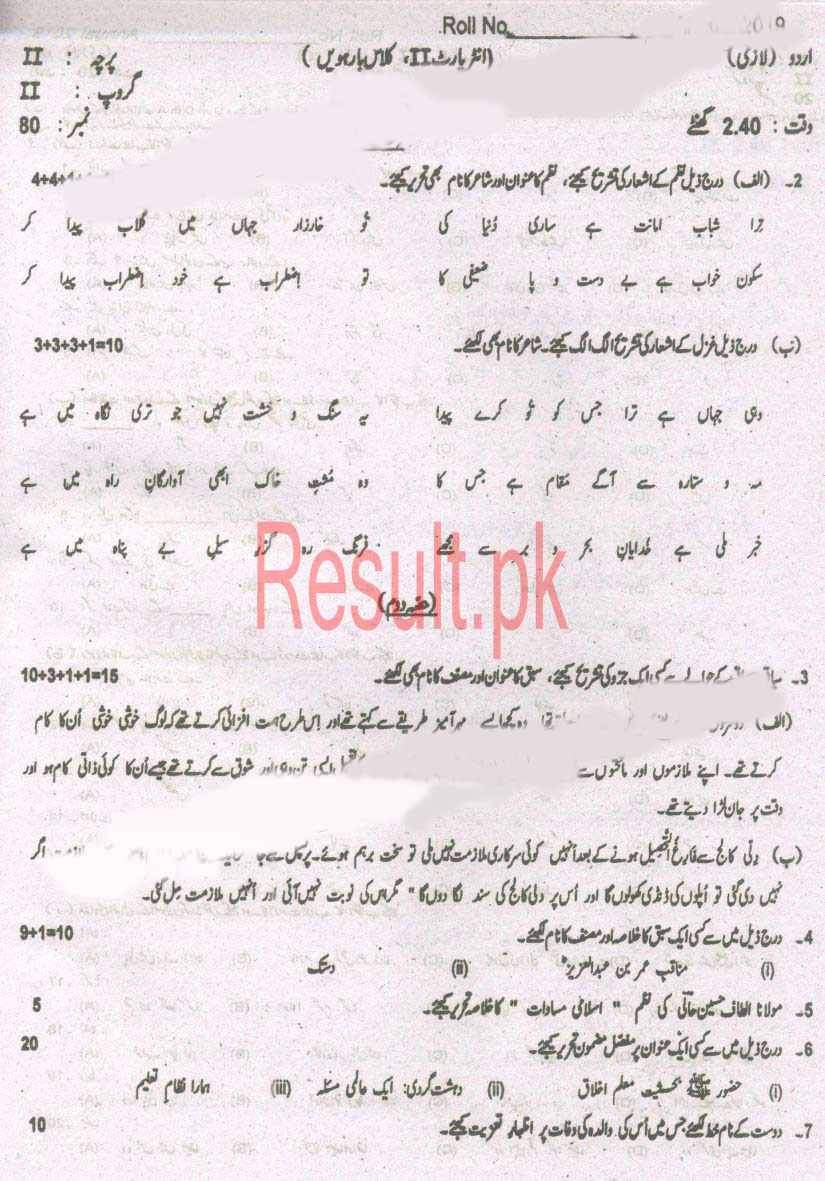 Roll No
اردو (لازمی) (انٹر پارٹ II، کلاس بارہویں) پرچہ : II
گروپ : II
وقت : 2.40 گھنٹے نمبر : 80
2۔ (الف) درج ذیل نظم کے اشعار کی تشریح کیجئے، نظم کا عنوان اور شاعر کا نام بھی تحریر کیجئے۔ 4+4+1
ترا شباب امانت ہے ساری دُنیا کی تُو خارزار جہاں میں گلاب پیدا کر
سکون خواب ہے بے دست و پا ضعیفی کا تو اضطراب ہے خود اضطراب پیدا کر
(ب) درج ذیل غزل کے اشعار کی تشریح الگ الگ کیجئے۔ شاعر کا نام بھی لکھئے۔ 3+3+3+1=10
وہی جہاں ہے ترا جس کو تُو کرے پیدا یہ سنگ و خشت نہیں جو تری نگاہ میں ہے
مہ و ستارہ سے آگے مقام ہے جس کا وہ مُشتِ خاک ابھی آوارگانِ راہ میں ہے
خبر ملی ہے خدایانِ بحر و بر سے مجھے فرنگ رہ گزرِ سیلِ بے پناہ میں ہے
Result.pk
(حصہ دوم)
3۔ کے حوالے سے کسی ایک جزو کی تشریح کیجئے، سبق کا عنوان اور مصنف کا نام بھی لکھئے۔ 10+3+1+1=15
(الف) وہ کچھ ایسے مہر آمیز طریقے سے کہتے تھے اور اِس طرح ہمت افزائی کرتے تھے کہ لوگ خوشی خوشی اُن کا کام
کرتے تھے۔ اپنے ملازموں اور ماتحتوں سے ایسی تن دہی اور شوق سے کرتے تھے جیسے اُن کا کوئی ذاتی کام ہو اور
وقت پر جان لڑا دیتے تھے۔
(ب) دِلی کالج سے فارغ التحصیل ہونے کے بعد اُنہیں کوئی سرکاری ملازمت نہیں ملی تو سخت برہم ہوئے۔ پرنسپل سے اگر
نہیں دی گئی تو اُپلوں کی ڈنڈی کھولوں گا اور اُس پر دلی کالج کی سند لگا دوں گا" مگر اس کی نوبت نہیں آئی اور اُنہیں ملازمت مِل گئی۔
4۔ درج ذیل میں سے کسی ایک سبق کا خلاصہ اور مصنف کا نام لکھئے۔ 9+1=10
(i) مناقب عمر بن عبدالعزیزؒ (ii) دستک
5۔ مولانا الطاف حسین حالی کی نظم " اسلامی مساوات " کا خلاصہ تحریر کیجئے۔ 5
6۔ درج ذیل میں سے کسی ایک عنوان پر مفصل مضمون تحریر کیجئے۔ 20
(i) حضور ﷺ بحیثیت معلم اخلاق (ii) دہشت گردی: ایک عالمی مسئلہ (iii) ہمارا نظامِ تعلیم
7۔ دوست کے نام خط لکھئے جس میں اُس کی والدہ کی وفات پر اظہار تعزیت کیجئے۔ 10